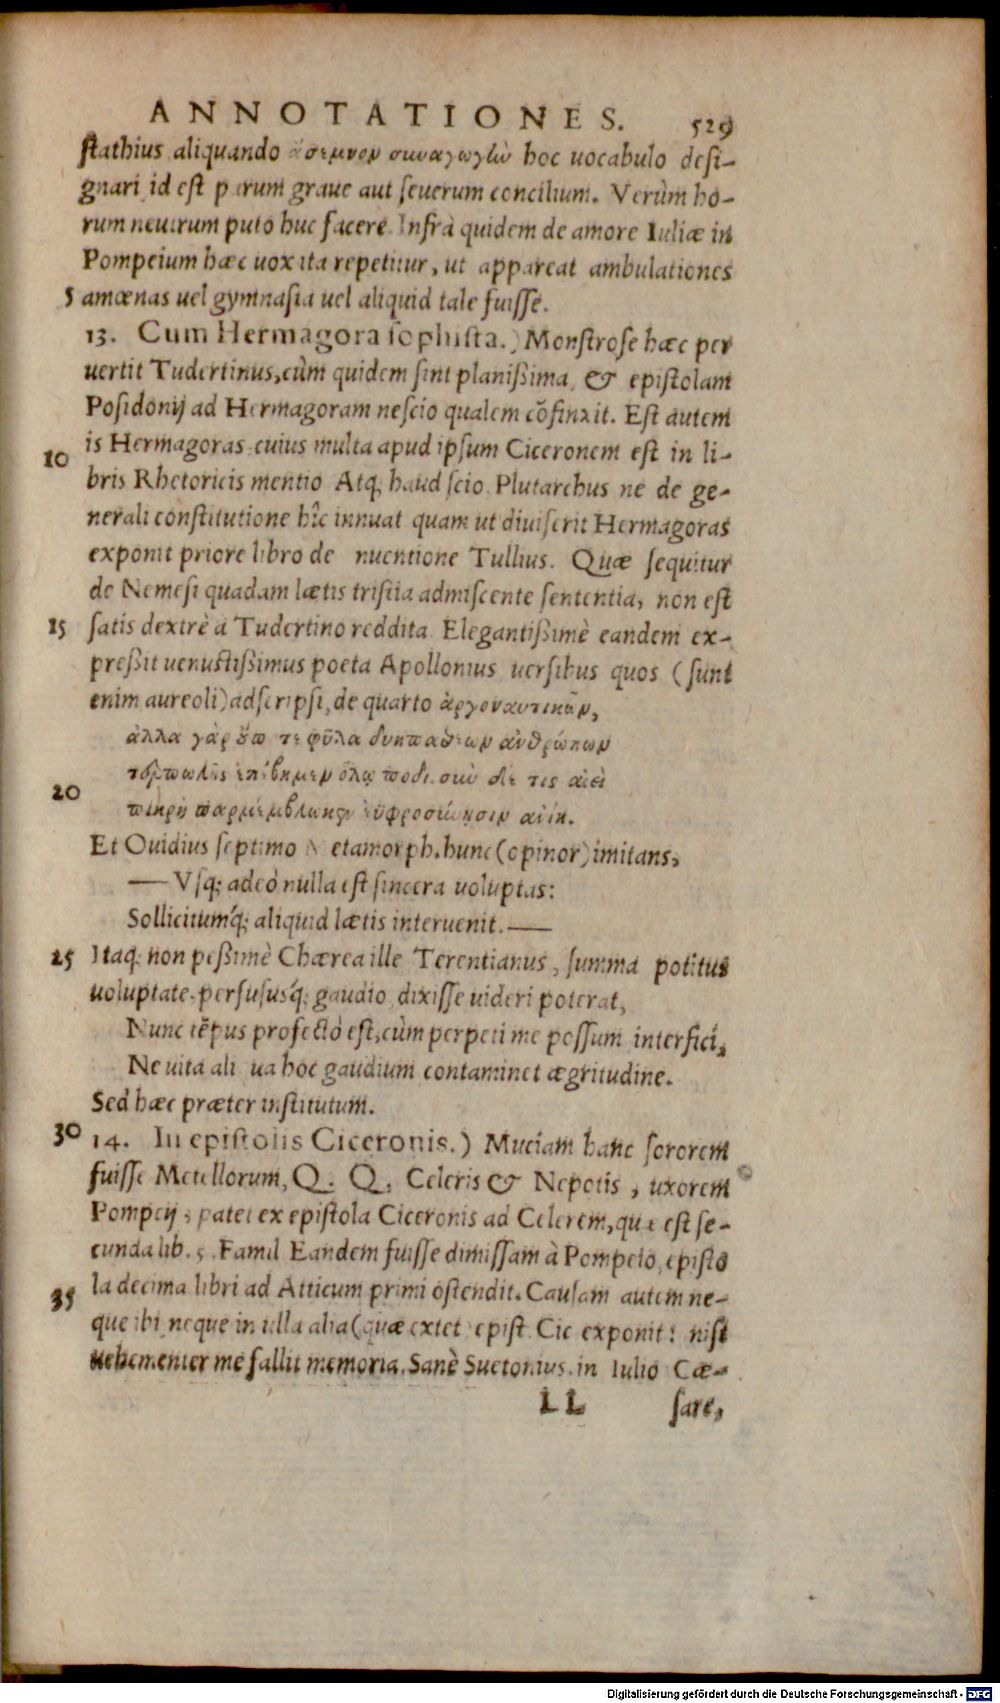 ANNOTATIONES. 529
ſtathius aliquando ἄσεμνον συναγωγὴν hoc uocabulo deſi-
gnari, id eſt parum graue aut ſeuerum concilium. Verùm ho-
rum neutrum puto huc facere. Infrà quidem de amore Iuliæ in
Pompeium hæc uox ita repetitur, ut appareat ambulationes
5 amœnas uel gymnaſia uel aliquid tale fuiſſe.
13. Cum Hermagora ſophiſta.) Monſtroſe hæc per
uertit Tudertinus, cùm quidem ſint planißima, & epiſtolam
Poſidonij ad Hermagoram neſcio qualem cõfinxit. Eſt autem
is Hermagoras cuius multa apud ipſum Ciceronem eſt in li-
10
bris Rhetoricis mentio Atq; haud ſcio Plutarchus ne de ge-
nerali conſtitutione hîc innuat quam ut diuiſerit Hermagoras
exponit priore libro de nuentione Tullius. Quæ ſequitur
de Nemeſi quadam lætis triſtia admiſcente ſententia, non eſt
15 ſatis dextrè à Tudertino reddita. Elegantißimè eandem ex-
preßit uenuſtißimus poeta Apollonius uerſibus quos (ſunt
enim aureoli) adſcripſi, de quarto ἀργοναυτικῶν,
ἀλλὰ γὰρ οὔπω τε φῦλα δυηπαθέων ἀνθρώπων
τερπωλῆς ἐπέβημεν ὅλῳ ποδί. σὺν δέ τις αἰεὶ
20
πικρὴ παρμέμβλωκεν ἐϋφροσύνῃσιν ἀνίη.
Et Ouidius ſeptimo Metamorph. hunc (opinor) imitans,
— Vſq; adeò nulla eſt ſincera uoluptas:
Sollicitumq́; aliquid lætis interuenit. —
25 Itaq; non peßimè Chærea ille Terentianus, ſumma potitus
uoluptate, perfuſusq́; gaudio dixiſſe uideri poterat,
Nunc tẽpus profectò eſt, cùm perpeti me poſſum interfici,
Ne uita ali ua hoc gaudium contaminet ægritudine.
Sed hæc præter inſtitutum.
30 14. In epiſtolis Ciceronis.) Muciam hanc ſororem
fuiſſe Metellorum, Q. Q. Celeris & Nepotis, uxorem
Pompeij, patet ex epiſtola Ciceronis ad Celerem, quæ eſt ſe-
cunda lib. 5. Famil Eandem fuiſſe dimiſſam à Pompeio, epiſto
35 la decima libri ad Atticum primi oſtendit. Cauſam autem ne-
que ibi neque in ulla alia (quæ extet) epiſt. Cic exponit: niſi
uehementer me fallit memoria. Sanè Suetonius in Iulio Cæ-
LL ſare,
Digitalisierung gefördert durch die Deutsche Forschungsgemeinschaft - DFG